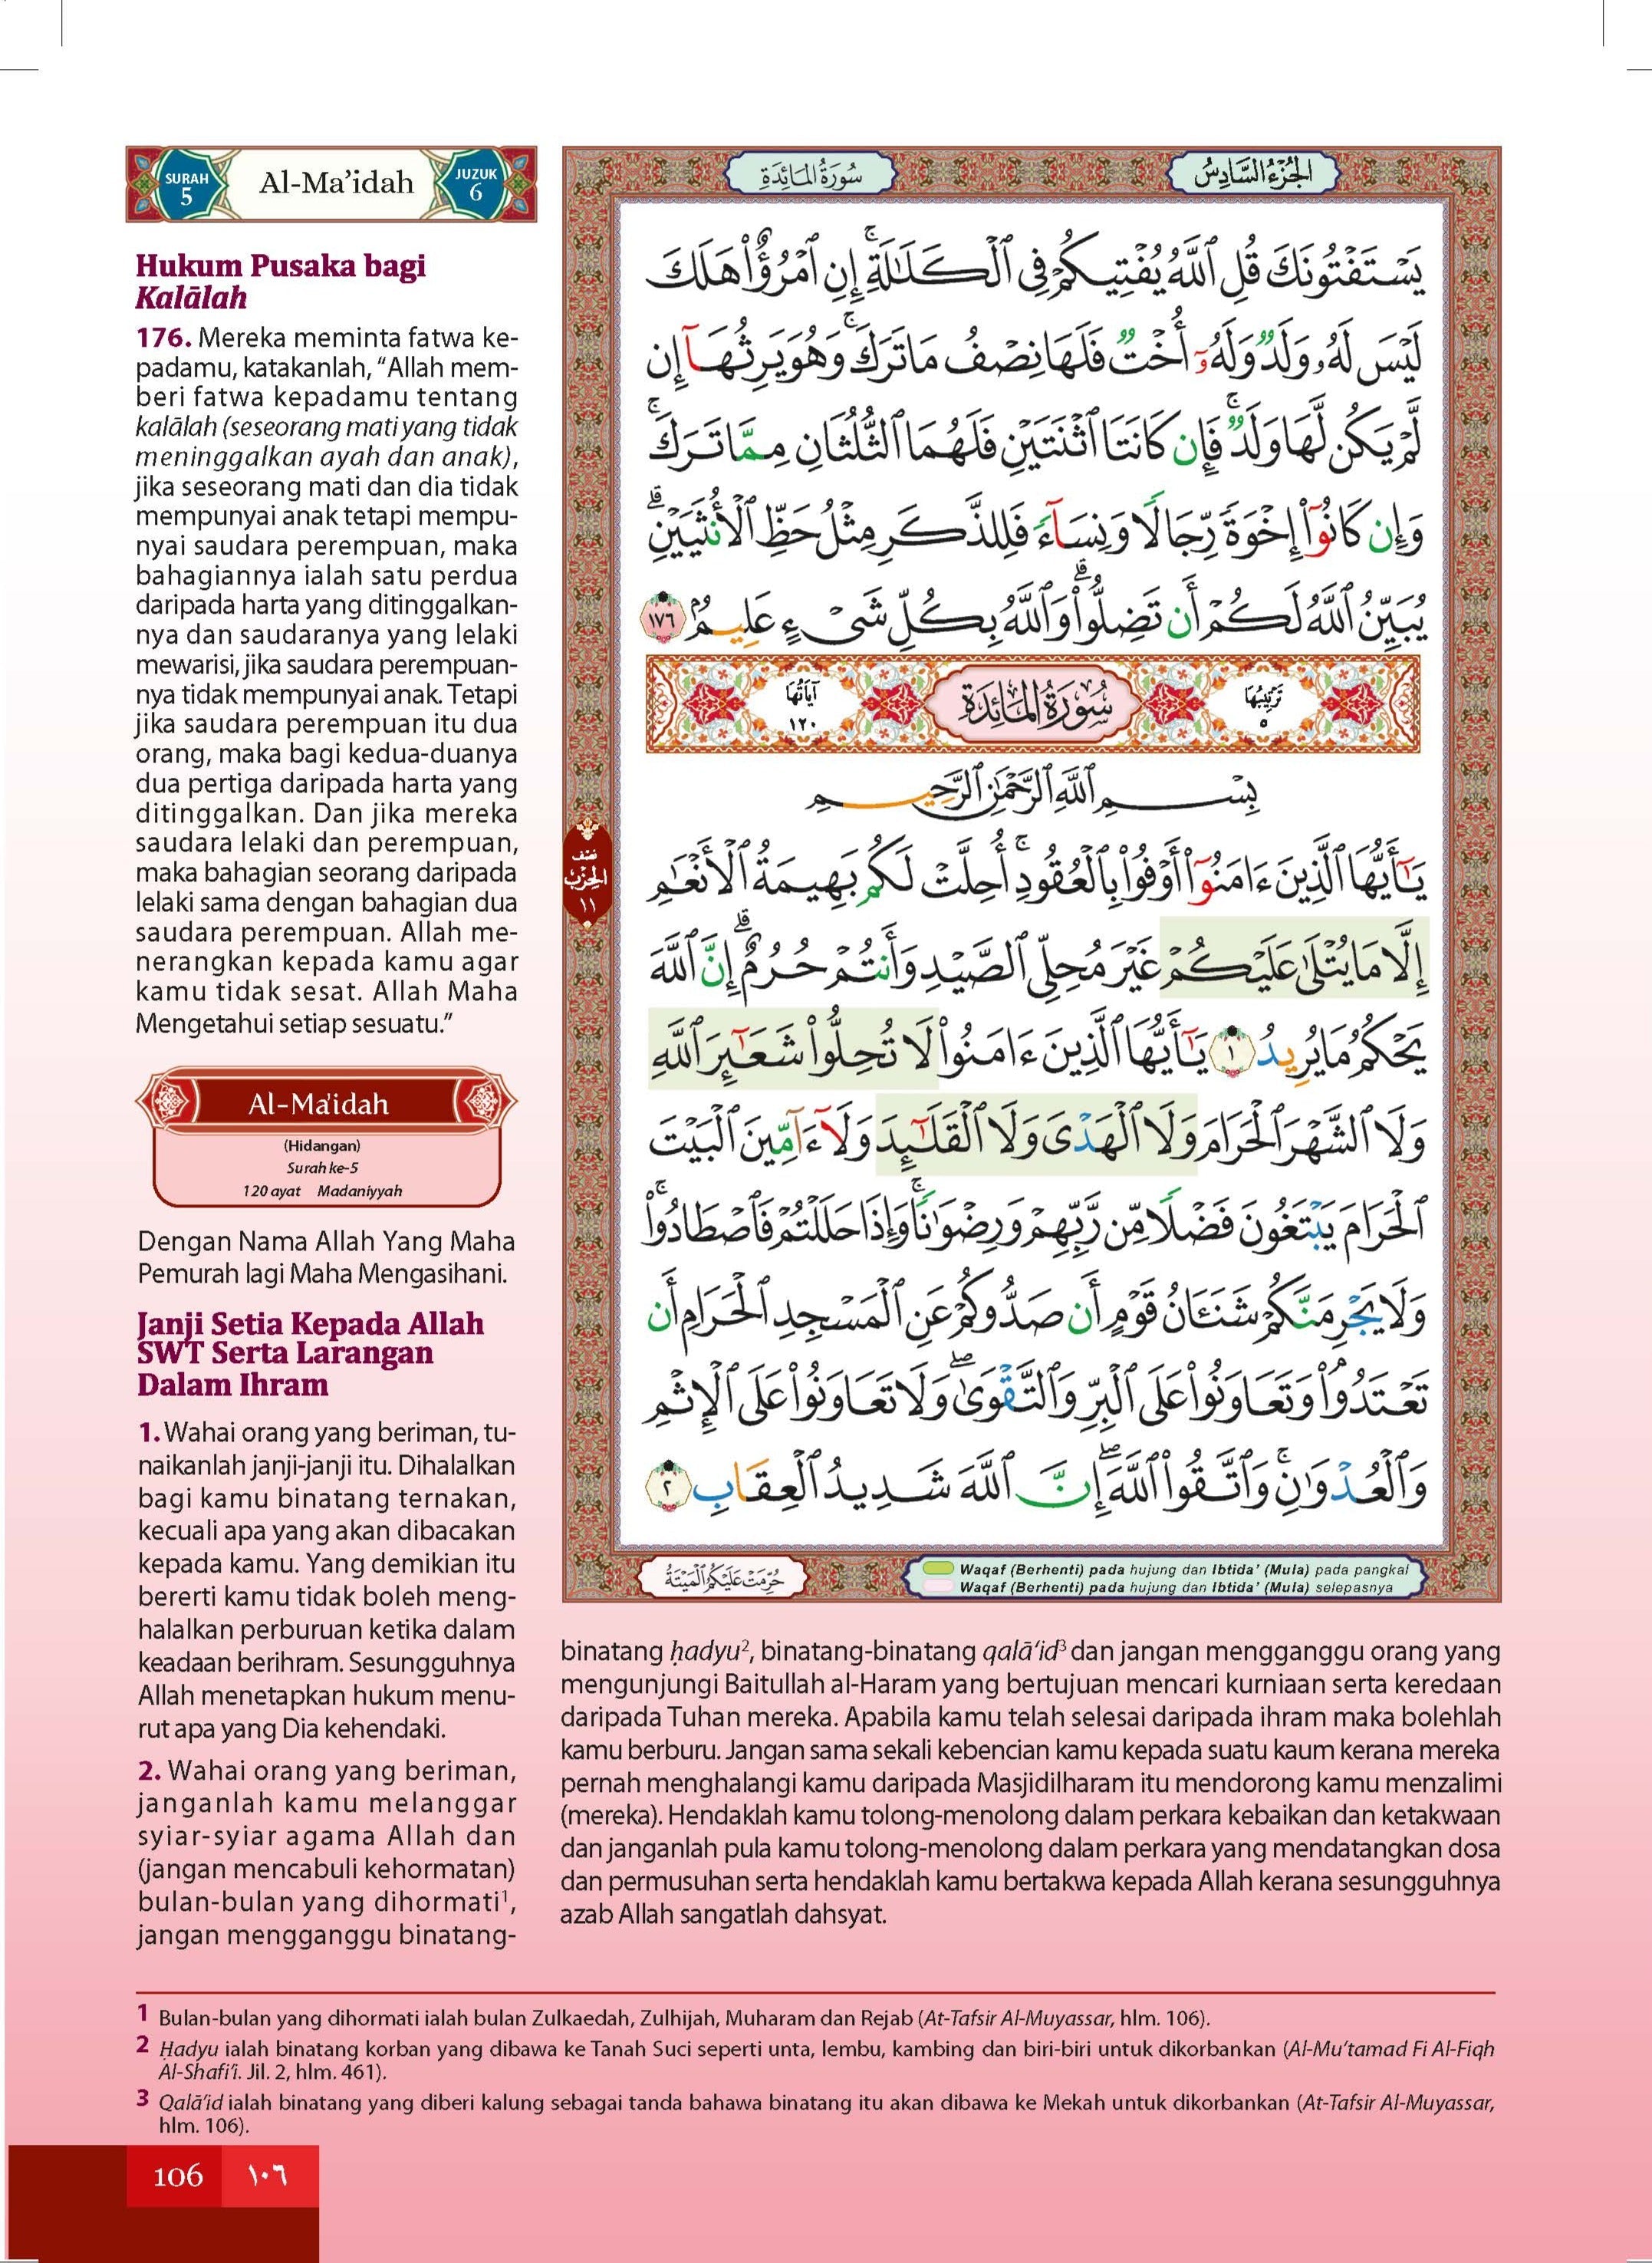 SURAH
5
Al-Ma’idah
JUZUK
6
Hukum Pusaka bagi
Kalālah
176. Mereka meminta fatwa ke-
padamu, katakanlah, “Allah mem-
beri fatwa kepadamu tentang
kalālah (seseorang mati yang tidak
meninggalkan ayah dan anak),
jika seseorang mati dan dia tidak
mempunyai anak tetapi mempu-
nyai saudara perempuan, maka
bahagiannya ialah satu perdua
daripada harta yang ditinggalkan-
nya dan saudaranya yang lelaki
mewarisi, jika saudara perempuan-
nya tidak mempunyai anak. Tetapi
jika saudara perempuan itu dua
orang, maka bagi kedua-duanya
dua pertiga daripada harta yang
ditinggalkan. Dan jika mereka
saudara lelaki dan perempuan,
maka bahagian seorang daripada
lelaki sama dengan bahagian dua
saudara perempuan. Allah me-
nerangkan kepada kamu agar
kamu tidak sesat. Allah Maha
Mengetahui setiap sesuatu.”
Al-Ma'idah
(Hidangan)
Surah ke-5
120 ayat Madaniyyah
Dengan Nama Allah Yang Maha
Pemurah lagi Maha Mengasihani.
Janji Setia Kepada Allah
SWT Serta Larangan
Dalam Ihram
1. Wahai orang yang beriman, tu-
naikanlah janji-janji itu. Dihalalkan
bagi kamu binatang ternakan,
kecuali apa yang akan dibacakan
kepada kamu. Yang demikian itu
bererti kamu tidak boleh meng-
halalkan perburuan ketika dalam
keadaan berihram. Sesungguhnya
Allah menetapkan hukum menu-
rut apa yang Dia kehendaki.
2. Wahai orang yang beriman,
janganlah kamu melanggar
syiar-syiar agama Allah dan
(jangan mencabuli kehormatan)
bulan-bulan yang dihormati¹,
jangan mengganggu binatang-
الجُزْءُ السَّادِسُ
سُورَةُ المَائِدَةِ
يَسْتَفْتُونَكَ قُلِ ٱللَّهُ يُفْتِيكُمْ فِى ٱلْكَلَٰلَةِ ۚ إِنِ ٱمْرُؤٌا۟ هَلَكَ
لَيْسَ لَهُۥ وَلَدٌ وَلَهُۥٓ أُخْتٌ فَلَهَا نِصْفُ مَا تَرَكَ ۚ وَهُوَ يَرِثُهَآ إِن
لَّمْ يَكُن لَّهَا وَلَدٌ ۚ فَإِن كَانَتَا ٱثْنَتَيْنِ فَلَهُمَا ٱلثُّلُثَانِ مِمَّا تَرَكَ ۚ
وَإِن كَانُوٓا۟ إِخْوَةً رِّجَالًا وَنِسَآءً فَلِلذَّكَرِ مِثْلُ حَظِّ ٱلْأُنثَيَيْنِ ۗ
يُبَيِّنُ ٱللَّهُ لَكُمْ أَن تَضِلُّوا۟ ۗ وَٱللَّهُ بِكُلِّ شَىْءٍ عَلِيمٌۢ ١٧٦
تَرْتِيبُهَا
٥
سُورَةُ المَائِدَةِ
آيَاتُهَا
١٢٠
بِسْمِ ٱللَّهِ ٱلرَّحْمَٰنِ ٱلرَّحِيمِ
يَٰٓأَيُّهَا ٱلَّذِينَ ءَامَنُوٓا۟ أَوْفُوا۟ بِٱلْعُقُودِ ۚ أُحِلَّتْ لَكُم بَهِيمَةُ ٱلْأَنْعَٰمِ
إِلَّا مَا يُتْلَىٰ عَلَيْكُمْ غَيْرَ مُحِلِّى ٱلصَّيْدِ وَأَنتُمْ حُرُمٌ ۗ إِنَّ ٱللَّهَ
يَحْكُمُ مَا يُرِيدُ ١ يَٰٓأَيُّهَا ٱلَّذِينَ ءَامَنُوا۟ لَا تُحِلُّوا۟ شَعَٰٓئِرَ ٱللَّهِ
وَلَا ٱلشَّهْرَ ٱلْحَرَامَ وَلَا ٱلْهَدْىَ وَلَا ٱلْقَلَٰٓئِدَ وَلَآ ءَآمِّينَ ٱلْبَيْتَ
ٱلْحَرَامَ يَبْتَغُونَ فَضْلًا مِّن رَّبِّهِمْ وَرِضْوَٰنًا ۚ وَإِذَا حَلَلْتُمْ فَٱصْطَادُوا۟ ۚ
وَلَا يَجْرِمَنَّكُمْ شَنَـَٔانُ قَوْمٍ أَن صَدُّوكُمْ عَنِ ٱلْمَسْجِدِ ٱلْحَرَامِ أَن
تَعْتَدُوا۟ ۘ وَتَعَاوَنُوا۟ عَلَى ٱلْبِرِّ وَٱلتَّقْوَىٰ ۖ وَلَا تَعَاوَنُوا۟ عَلَى ٱلْإِثْمِ
وَٱلْعُدْوَٰنِ ۚ وَٱتَّقُوا۟ ٱللَّهَ ۖ إِنَّ ٱللَّهَ شَدِيدُ ٱلْعِقَابِ ٢
نصف
الحزب
١١
حُرِّمَتْ عَلَيْكُمُ ٱلْمَيْتَةُ
Waqaf (Berhenti) pada hujung dan Ibtida’ (Mula) pada pangkal
Waqaf (Berhenti) pada hujung dan Ibtida’ (Mula) selepasnya
binatang ḥadyu², binatang-binatang qalā‘id³ dan jangan mengganggu orang yang
mengunjungi Baitullah al-Haram yang bertujuan mencari kurniaan serta keredaan
daripada Tuhan mereka. Apabila kamu telah selesai daripada ihram maka bolehlah
kamu berburu. Jangan sama sekali kebencian kamu kepada suatu kaum kerana mereka
pernah menghalangi kamu daripada Masjidilharam itu mendorong kamu menzalimi
(mereka). Hendaklah kamu tolong-menolong dalam perkara kebaikan dan ketakwaan
dan janganlah pula kamu tolong-menolong dalam perkara yang mendatangkan dosa
dan permusuhan serta hendaklah kamu bertakwa kepada Allah kerana sesungguhnya
azab Allah sangatlah dahsyat.
1 Bulan-bulan yang dihormati ialah bulan Zulkaedah, Zulhijah, Muharam dan Rejab (At-Tafsir Al-Muyassar, hlm. 106).
2 Ḥadyu ialah binatang korban yang dibawa ke Tanah Suci seperti unta, lembu, kambing dan biri-biri untuk dikorbankan (Al-Mu‘tamad Fi Al-Fiqh
Al-Shafi‘i. Jil. 2, hlm. 461).
3 Qalā‘id ialah binatang yang diberi kalung sebagai tanda bahawa binatang itu akan dibawa ke Mekah untuk dikorbankan (At-Tafsir Al-Muyassar,
hlm. 106).
106 ١٠٦